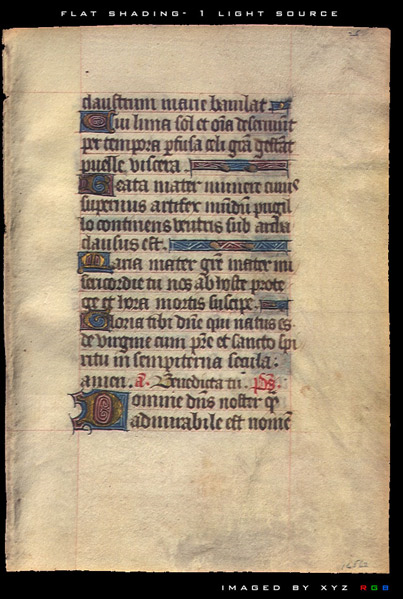 FLAT SHADING- 1 LIGHT SOURCE
claustrum marie baiulat
Cui luna sol et oia deseruiūt
per tempora pfusa celi gra gestāt
puelle viscera.
Beata mater munere cuius
supernus artifex mūdū pugil
lo continens ventris sub archa
clausus est.
Maria mater gre mater mi
sericordie tu nos ab hoste prote
ge et hora mortis suscipe.
Gloria tibi dne qui natus es
de virgine cum pre et sancto spi
ritu in sempiterna secula:
amen. a. Benedicta tu. ps.
Domine dns noster q̄
admirabile est nomē
IMAGED BY XYZ RGB